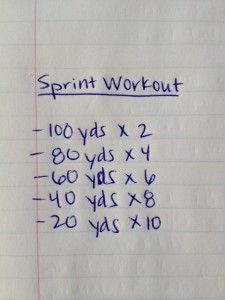 Sprint Workout
- 100 yds x 2
- 80 yds x 4
- 60 yds x 6
- 40 yds x 8
- 20 yds x 10